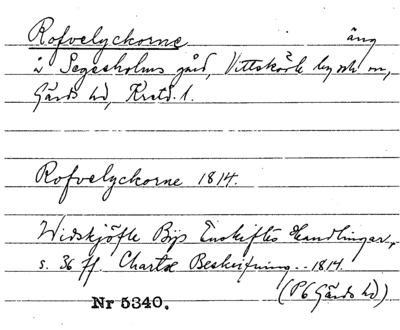 Rofvelyckorne äng
å Segesholms gård, Vittskövle by och sn,
Gärds hd, Krstd. l.
Rofvelyckorne 1814.
Widskjöfle Bys Enskiftes Handlingar,
s. 36 ff. Charte Beskrifning.. 1814
(P6 Gärds hd)
Nr 5340.